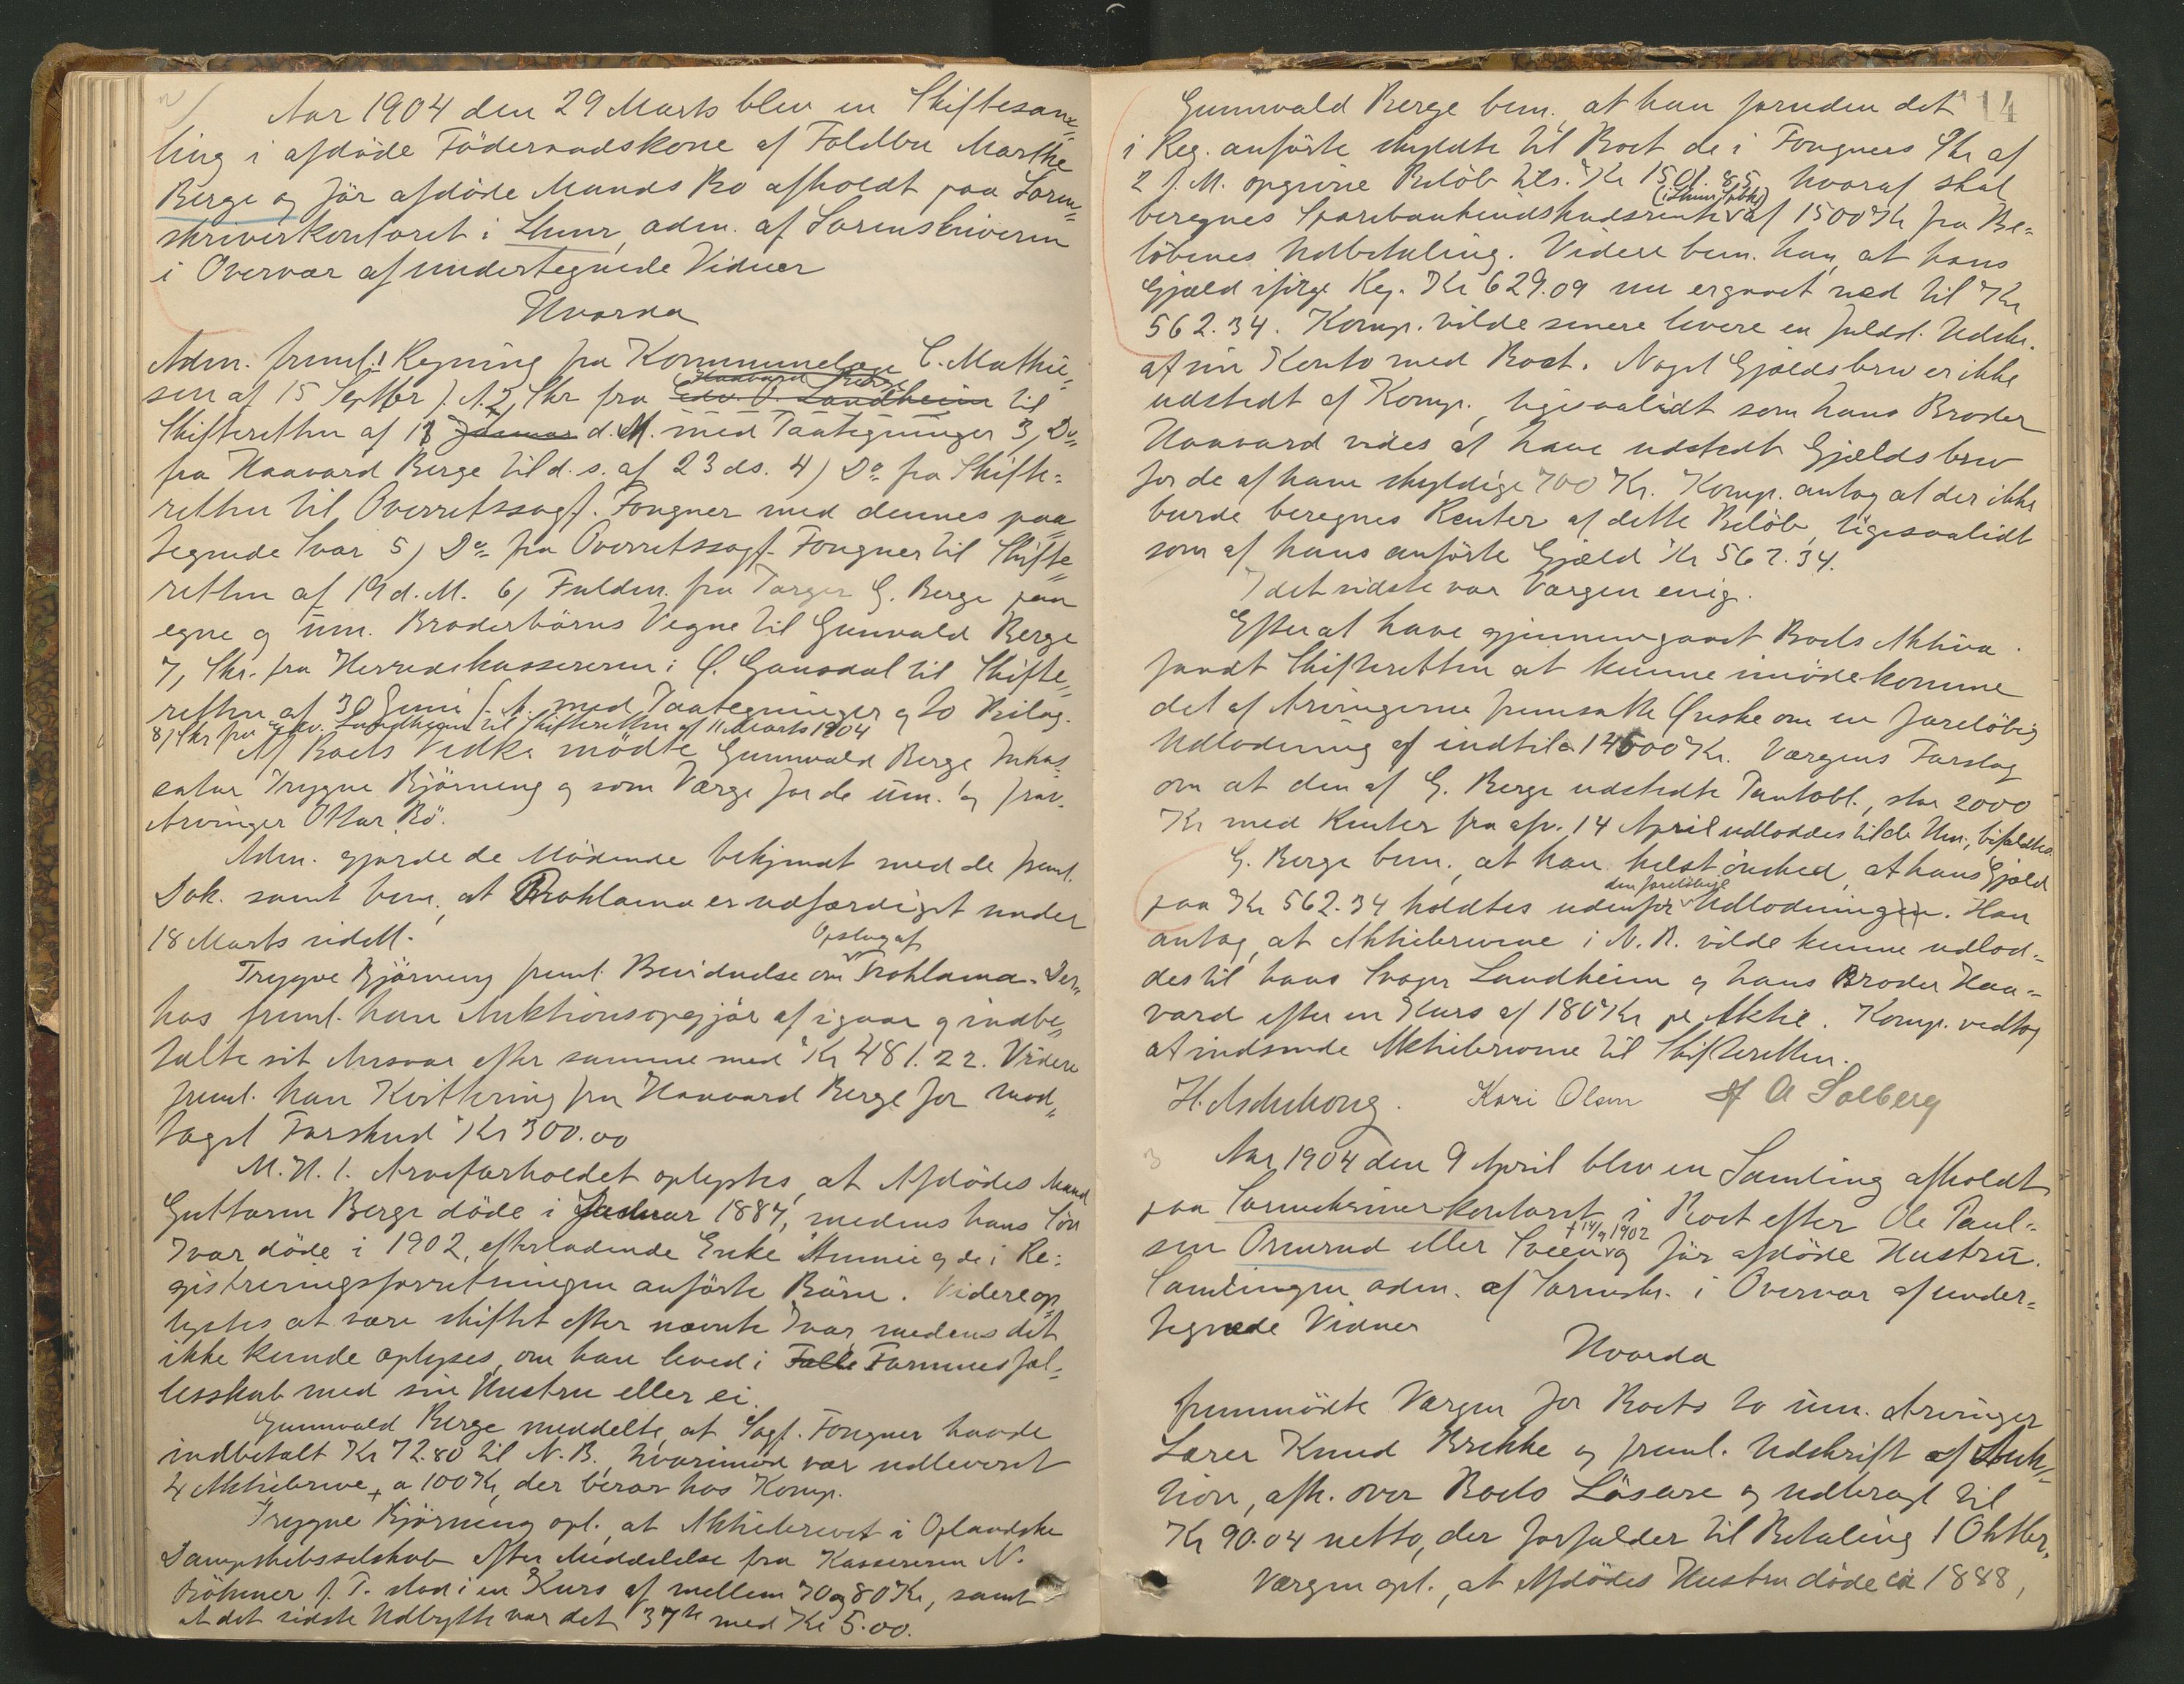 Aar 1904 den 29 Marts blev en Skiftesam=
ling i afdöde Föderaadskone af Foldbu Marthe
Berge og för afdöde Mands Bo afholdt paa Soren=
skriverkontoret i Lunner, adm. af Sorenskriveren
i Overvær af undertegnede Vidner
Hvorda
Adm. freml. 1 Regning fra Kommunelæge C. Mathie=
sen af 15 Septbr f. A. 2, Skr fra Haavard Berge Edv. O. Landheim til
Skifteretten af 13 Januar d. M. med Paategninger 3, Do
fra Haavard Berge til d. s. af 23 ds. 4) Do fra Skifte=
retten til Overretssagf. Fougner med dennes paa
tegnede Svar 5) Do fra Overretssagf. Fougner til Skifte=
retten af 19 d. M. 6, Fuldm. fra Torger G. Berge paa
egne og um. Broderbörns Vegne til Gunvald Berge
7, Skr. fra Herredskassereren i Ö. Gausdal til Skifte=
retten af 30 Juni f. A. med Paategninger og 20 Bilag.
8) Skr fra Edv. Landheim til Skifteretten af 11 Marts 1904
Af Boets Vedk. mödte Gunnvald Berge Inkas=
sator Trygve Björneng og som Værge for de um. og frav.
Arvinger Ottar Bö.
Adm. gjorde de Mödende bekjendt med de freml.
Dok. samt bem. at Proklama er udfærdiget under
18 Marts sidstl.
Trygve Björneng freml. Bevidnelse om Opslag af Proklama. Der=
hos freml. han Auktionsopgjör af igaar og indbe=
talte sit Ansvar efter samme med Kr 481.22. Videre
freml. han Kvittering fra Haavard Berge for mod=
taget Forskud Kr 300.00
M. H. t. Arveforholdet oplystes, at Afdödes Mand
Guttorm Berge döde i Januar 1887, medens hans Sön
Ivar döde i 1902, efterladende Enke Annie og de i Re=
gistreringsforretningen anförte Börn. Videre op=
lystes at være skiftet efter nævnte Ivar, medens det
ikke kunde oplyses, om han leved i Fælle Formuesfæl=
lesskab med sin Hustru eller ei.
Gunnvald Berge meddelte, at Sagf. Fougner havde
indbetalt Kr 72.80 til N. B. hvorimod var udleveret
4 Aktiebreve, a 100 Kr, der beror hos Komp.
Trygve Björneng opl. at Aktiebrevet i Oplandske
Dampskibsselskab efter Meddelelse fra Kassereren N.
Böhmer f. T. stod i en Kurs af mellem 70 og 80 Kr, samt
at det sidste Udbytte var det 37te med Kr 5.00.
14
Gunnvald Berge bem. at han foruden det
i Reg. anförte skyldte til Boet de i Fougners Skr af
2 f. M. opgivne Belöb tils. Kr 1501.85, hvoraf skal
beregnes Sparebankindskudsrente (i Lunner Spbk) af 1500 Kr fra Be=
löbenes Udbetaling. Videre bem. han, at hans
Gjæld ifölge Reg. Kr 629.09 nu er gaaet ned til Kr
562.34. Komp. vilde senere levere en fuldst. Udskr.
af sin Konto med Boet. Noget Gjældsbrev er ikke
udstedt af Komp., ligesaalidt som hans Broder
Haavard vides at have udstedt Gjældsbrev
for de af ham skyldige 700 Kr. Komp. antog at der ikke
burde beregnes Renter af dette Belöb, ligesaalidt
som af hans anförte Gjæld Kr 562.34.
I det sidste var Værgen enig.
Efter at have gjennemgaaet Boets Aktiva
fandt Skifteretten at kunne imödekomme
det af Arvingerne fremsatte Önske om en forelöbig
Udlodning af indtil 14500 Kr. Værgens Forslag
om at den af G. Berge udstedte Pantobl., stor 2000
Kr med Renter fra afv. 14 April udloddes til de Um., bifaldtes.
G. Berge bem., at han helst önsked, at hans Gjæld
paa Kr 562.34 holdtes udenfor den forelöbige Udlodningen. Han
antog, at Aktiebrevene i N. B. vilde kunne udlod=
des til hans Svoger Landheim og hans Broder Haa=
vard efter en Kurs af 180 Kr pr Aktie. Komp. vedtog
at indsende Aktiebrevene til Skifteretten.
H. Aschehoug. Kari Olsen A Solberg
3 Aar 1904 den 9 April blev en Samling afholdt
paa Sorenskriverkontoret i Boet efter Ole Paul=
sen Omsrud eller Sveen † 14/9 1902 og för afdöde Hustru.
Samlingen adm. af Sorenskr. i Overvær af under=
tegnede Vidner
Hvorda
fremmödte Værgen for Boets to um. Arvinger
Lærer Knud Brekke og freml. Udskrift af Auk=
tion, afh. over Boets Lösöre og udbragt til
Kr 90.04 netto, der forfalder til Betaling 1 Oktbr.
Værgen opl., at Afdödes Hustru döde ca 1888,